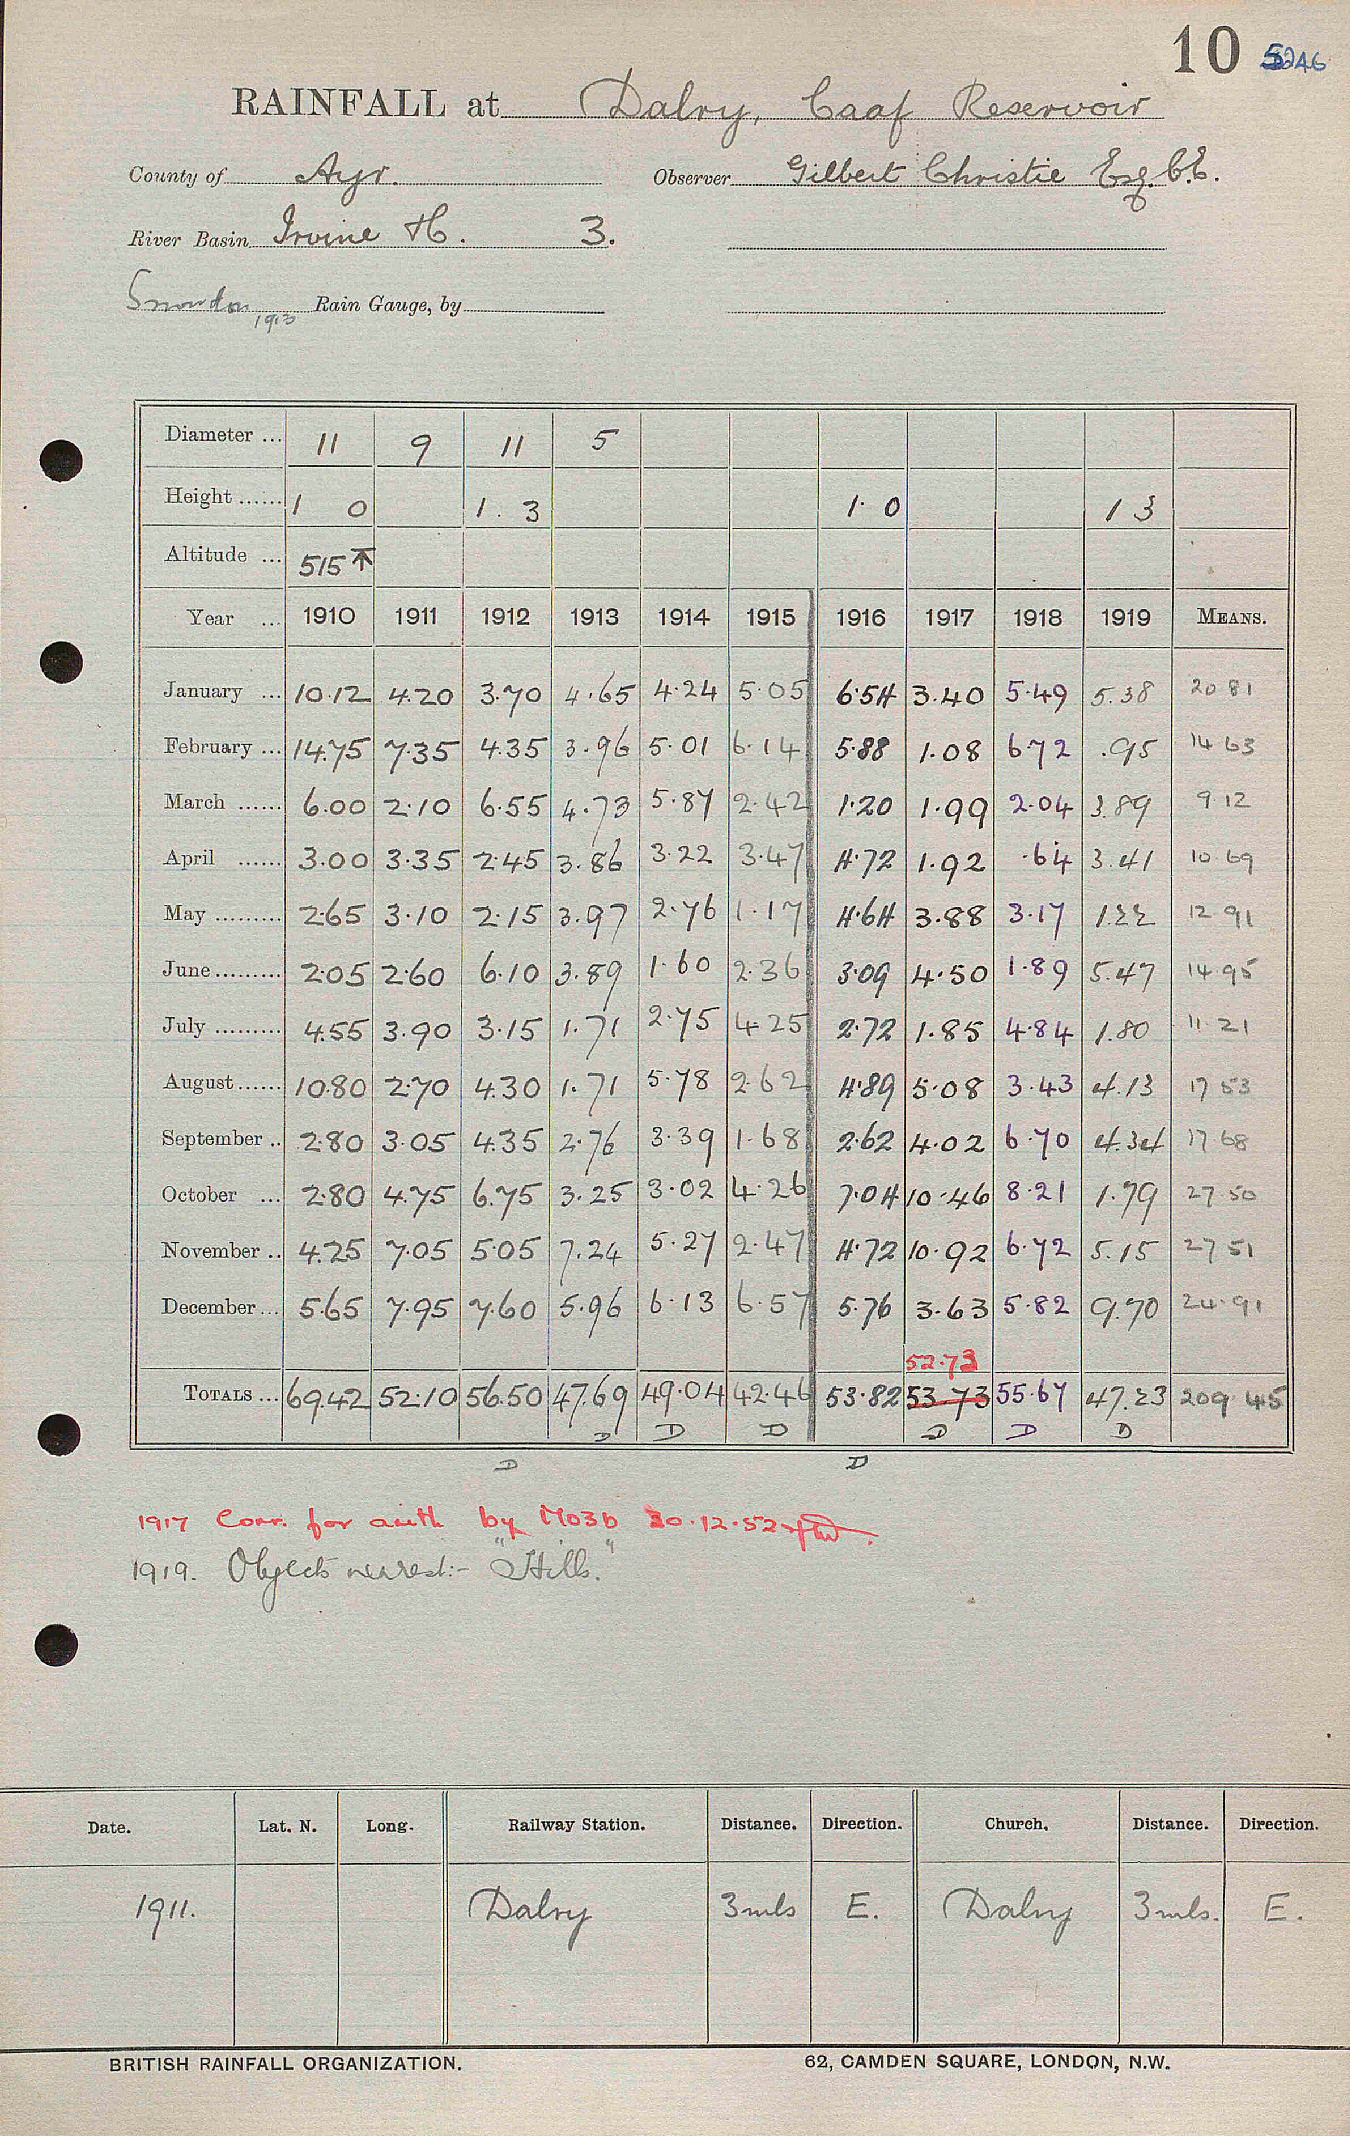 10 5246
RAINFALL at Dalry, Caaf Reservoir
County of Ayr. Observer Gilbert Christie Esq. C.E.
River Basin Irvine H. 3.
Snowdon 1913 Rain Gauge, by
Diameter ... 11 9 11 5
Height ...... 1 0 1. 3 1. 0 1 3
Altitude ... 515
Year ... 1910 1911 1912 1913 1914 1915 1916 1917 1918 1919 MEANS.
January ... 10.12 4.20 3.70 4.65 4.24 5.05 6.54 3.40 5.49 5.38 20 81
February ... 14.75 7.35 4.35 3.96 5.01 6.14 5.88 1.08 6.72 .95 14 63
March ...... 6.00 2.10 6.55 4.73 5.87 2.42 1.20 1.99 2.04 3.89 9 12
April ...... 3.00 3.35 2.45 3.86 3.22 3.47 4.72 1.92 .64 3.41 10 69
May ......... 2.65 3.10 2.15 3.97 2.76 1.17 4.64 3.88 3.17 1.22 12 91
June ......... 2.05 2.60 6.10 3.89 1.60 2.36 3.09 4.50 1.89 5.47 14.95
July ......... 4.55 3.90 3.15 1.71 2.75 4.25 2.72 1.85 4.84 1.80 11 21
August ...... 10.80 2.70 4.30 1.71 5.78 2.62 4.89 5.08 3.43 4.13 17 53
September .. 2.80 3.05 4.35 2.76 3.39 1.68 2.62 4.02 6.70 4.34 17 68
October ... 2.80 4.75 6.75 3.25 3.02 4.26 7.04 10.46 8.21 1.79 27 50
November .. 4.25 7.05 5.05 7.24 5.27 2.47 4.72 10.92 6.72 5.15 27 51
December ... 5.65 7.95 7.60 5.96 6.13 6.57 5.76 3.63 5.82 9.70 24.91
52.73
TOTALS ... 69.42 52.10 56.50 47.69 49.04 42.46 53.82 53.73 55.67 47.23 209 45
D D D D D D
D D
1917 Corr. for arith by Mo3b 30.12.52
1919. Objects nearest:- "Hills."
Date. Lat. N. Long. Railway Station. Distance. Direction. Church. Distance. Direction.
1911. Dalry 3 mls E. Dalry 3 mls. E.
BRITISH RAINFALL ORGANIZATION. 62, CAMDEN SQUARE, LONDON, N.W.